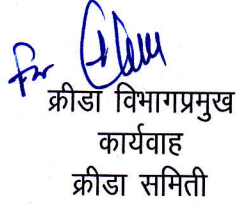 for
क्रीडा विभागप्रमुख
कार्यवाह
क्रीडा समिती